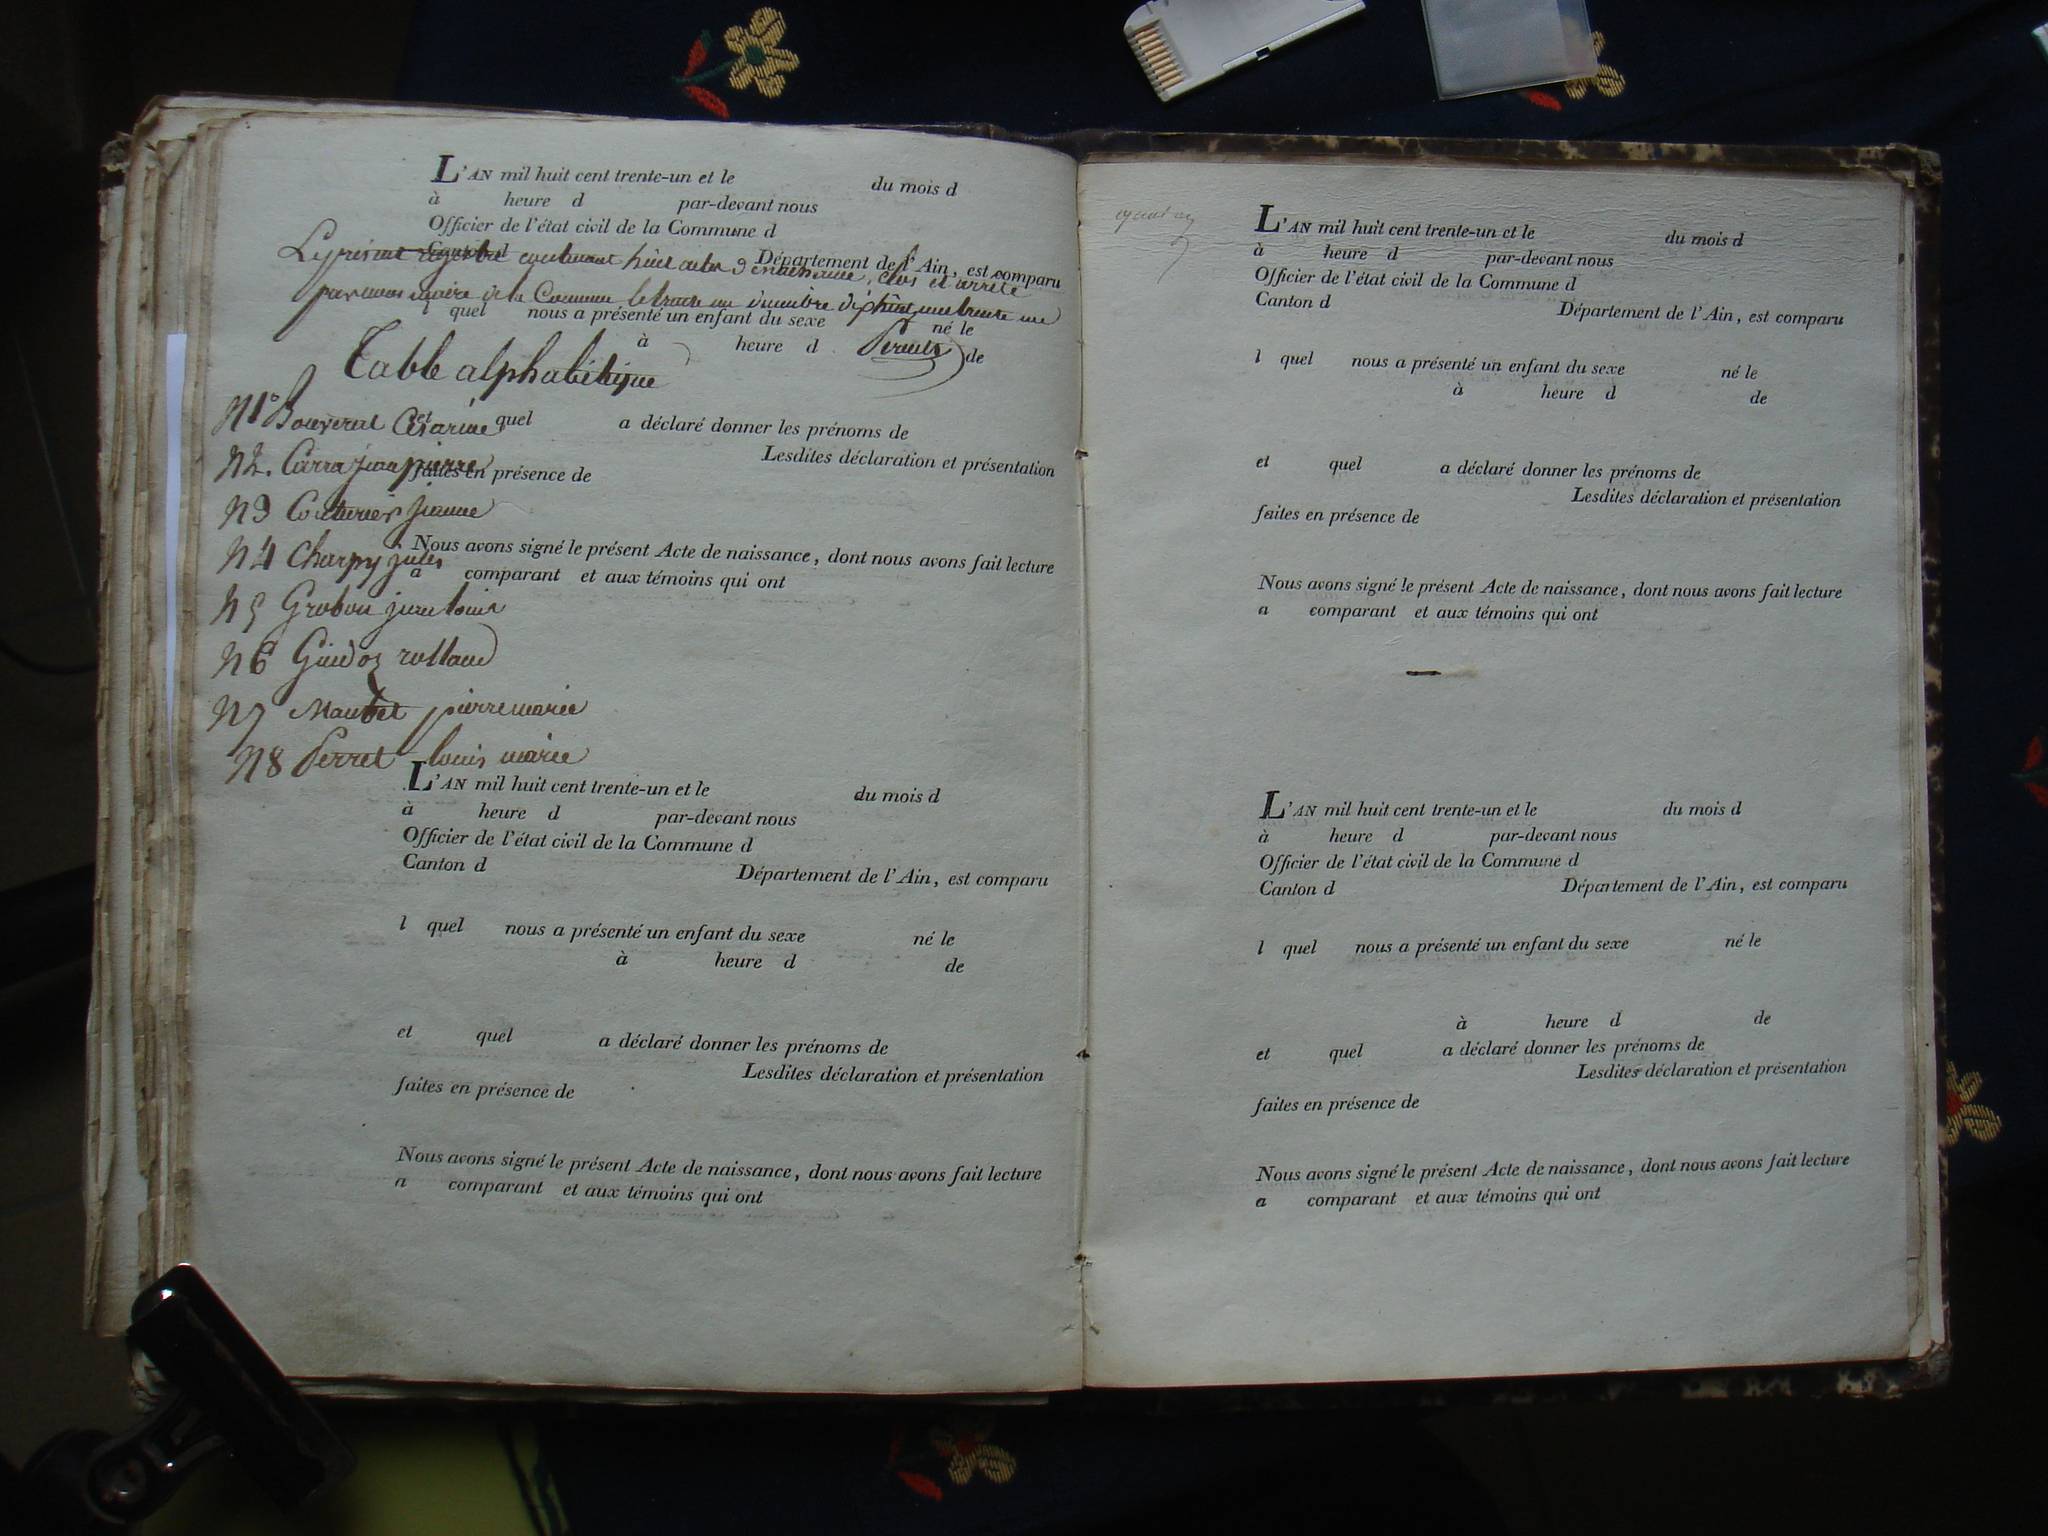 L'AN mil huit cent trente-un et le du mois d
à heure d par-devant nous
Officier de l'état civil de la Commune d
Canton d Département de l'Ain, est comparu
Le présent registre contenant huit actes de naissance, clos et arrêté
par nous maire de la Commune le trente un décembre dix huit cent trente un
quel nous a présenté un enfant du sexe né le
à heure d de
Table alphabétique
N 1° Bouverat Césarine
et quel a déclaré donner les prénoms de
N 2. Carra jean pierre
Lesdites déclaration et présentation
faites en présence de
N 3 Couturier jeanne
N 4 Charpy jules
Nous avons signé le présent Acte de naissance, dont nous avons fait lecture
a comparant et aux témoins qui ont
N 5 Grobon jean louis
N 6 Guidoz rolland
N 7 Maubet pierre marie
N 8 Perret louis marie
L'AN mil huit cent trente-un et le du mois d
à heure d par-devant nous
Officier de l'état civil de la Commune d
Canton d Département de l'Ain, est comparu
l quel nous a présenté un enfant du sexe né le
à heure d de
et quel a déclaré donner les prénoms de
Lesdites déclaration et présentation
faites en présence de
Nous avons signé le présent Acte de naissance, dont nous avons fait lecture
a comparant et aux témoins qui ont
L'AN mil huit cent trente-un et le du mois d
à heure d par-devant nous
Officier de l'état civil de la Commune d
Canton d Département de l'Ain, est comparu
l quel nous a présenté un enfant du sexe né le
à heure d de
et quel a déclaré donner les prénoms de
Lesdites déclaration et présentation
faites en présence de
Nous avons signé le présent Acte de naissance, dont nous avons fait lecture
a comparant et aux témoins qui ont
L'AN mil huit cent trente-un et le du mois d
à heure d par-devant nous
Officier de l'état civil de la Commune d
Canton d Département de l'Ain, est comparu
l quel nous a présenté un enfant du sexe né le
à heure d de
et quel a déclaré donner les prénoms de
Lesdites déclaration et présentation
faites en présence de
Nous avons signé le présent Acte de naissance, dont nous avons fait lecture
a comparant et aux témoins qui ont